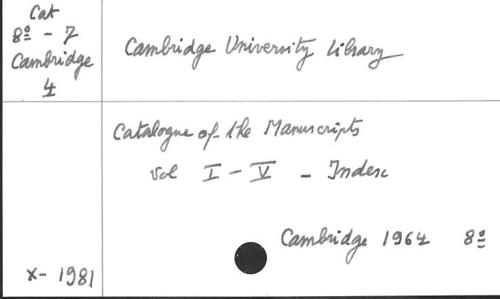 Cat
8º - 7
Cambridge
4
Cambridge University Library
Catalogue of the Manuscripts
Vol I - V - Index
Cambridge 1964 8º
X - 1981